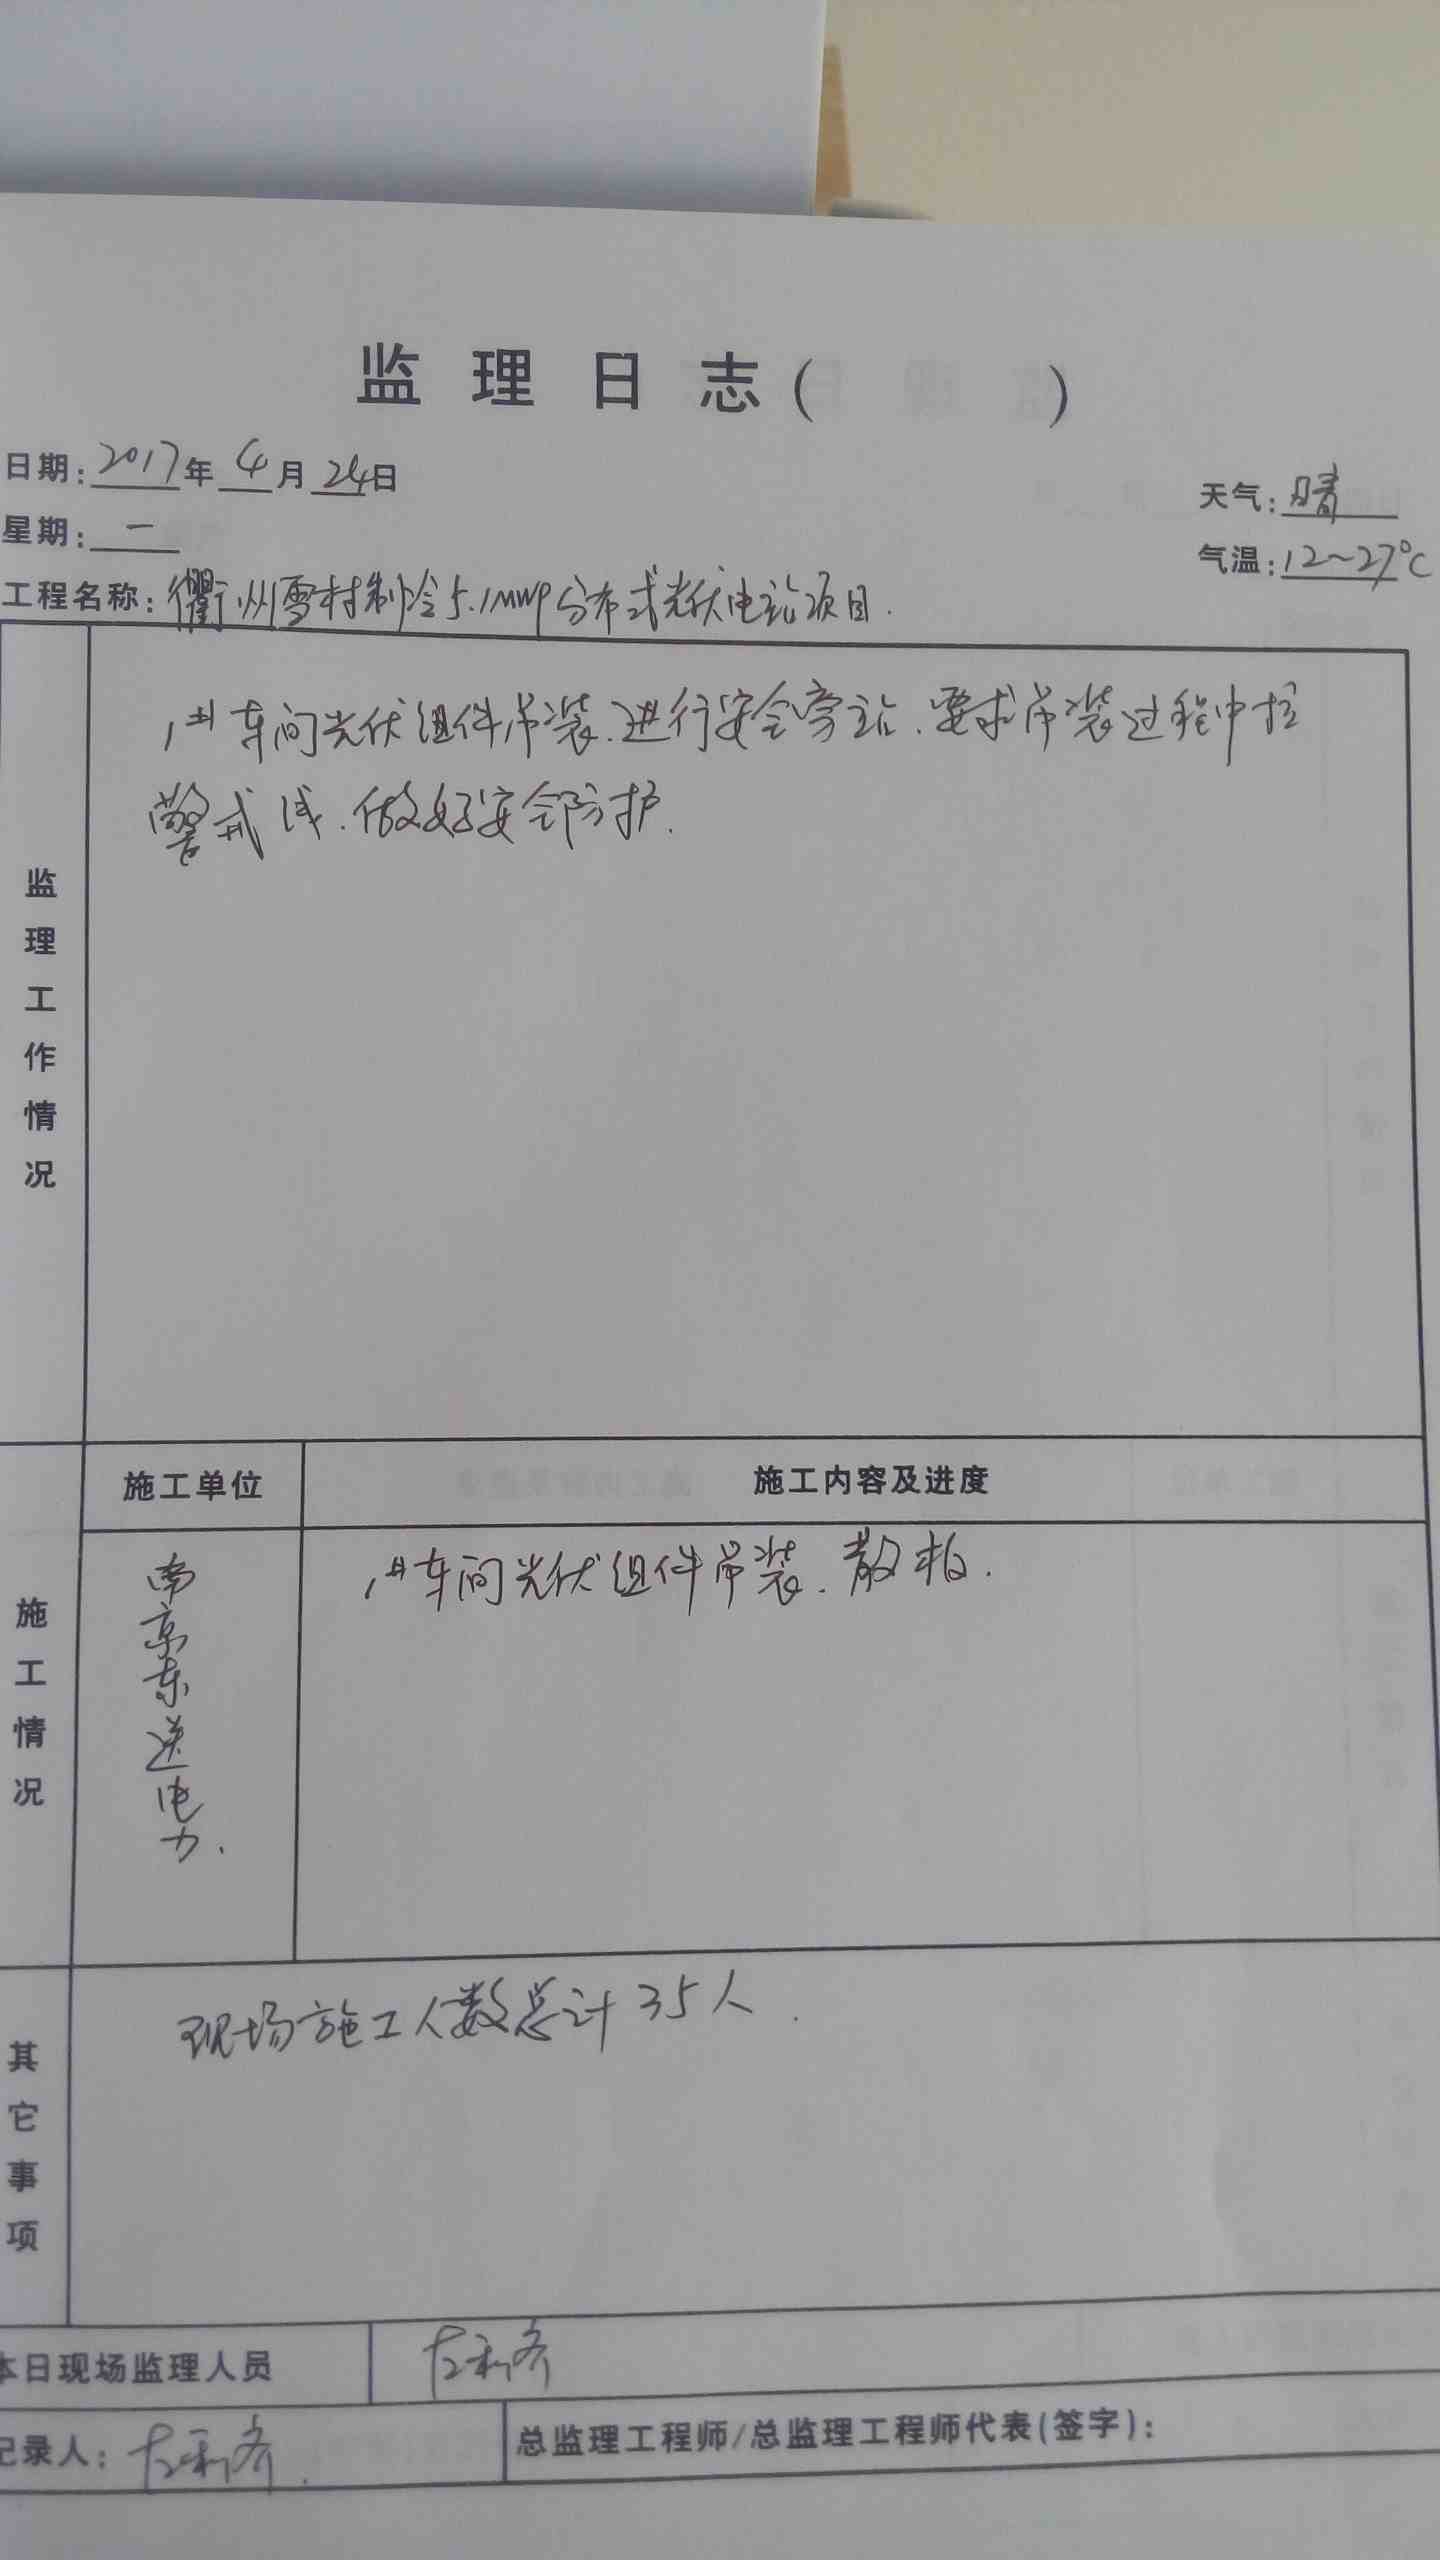 监理日志( )
日期:2017年4月24日
天气:晴
星期:一
气温:12~27℃
工程名称:衢州雪村制冷5.1MWp分布式光伏电站项目.
监理工作情况
1#车间光伏组件吊装.进行安全旁站.要求吊装过程中拉
警戒线.做好安全防护.
施工单位
施工内容及进度
施工情况
南京东送电力.
1#车间光伏组件吊装.散板.
其它事项
现场施工人数总计35人.
本日现场监理人员
记录人:
总监理工程师/总监理工程师代表(签字):